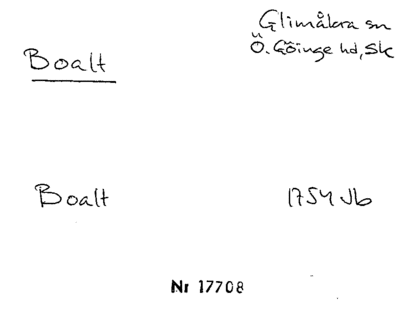 Glimåkra sn
Ö. Göinge hd, Sk
Boalt
Boalt 1754 Jb
Nr 17708